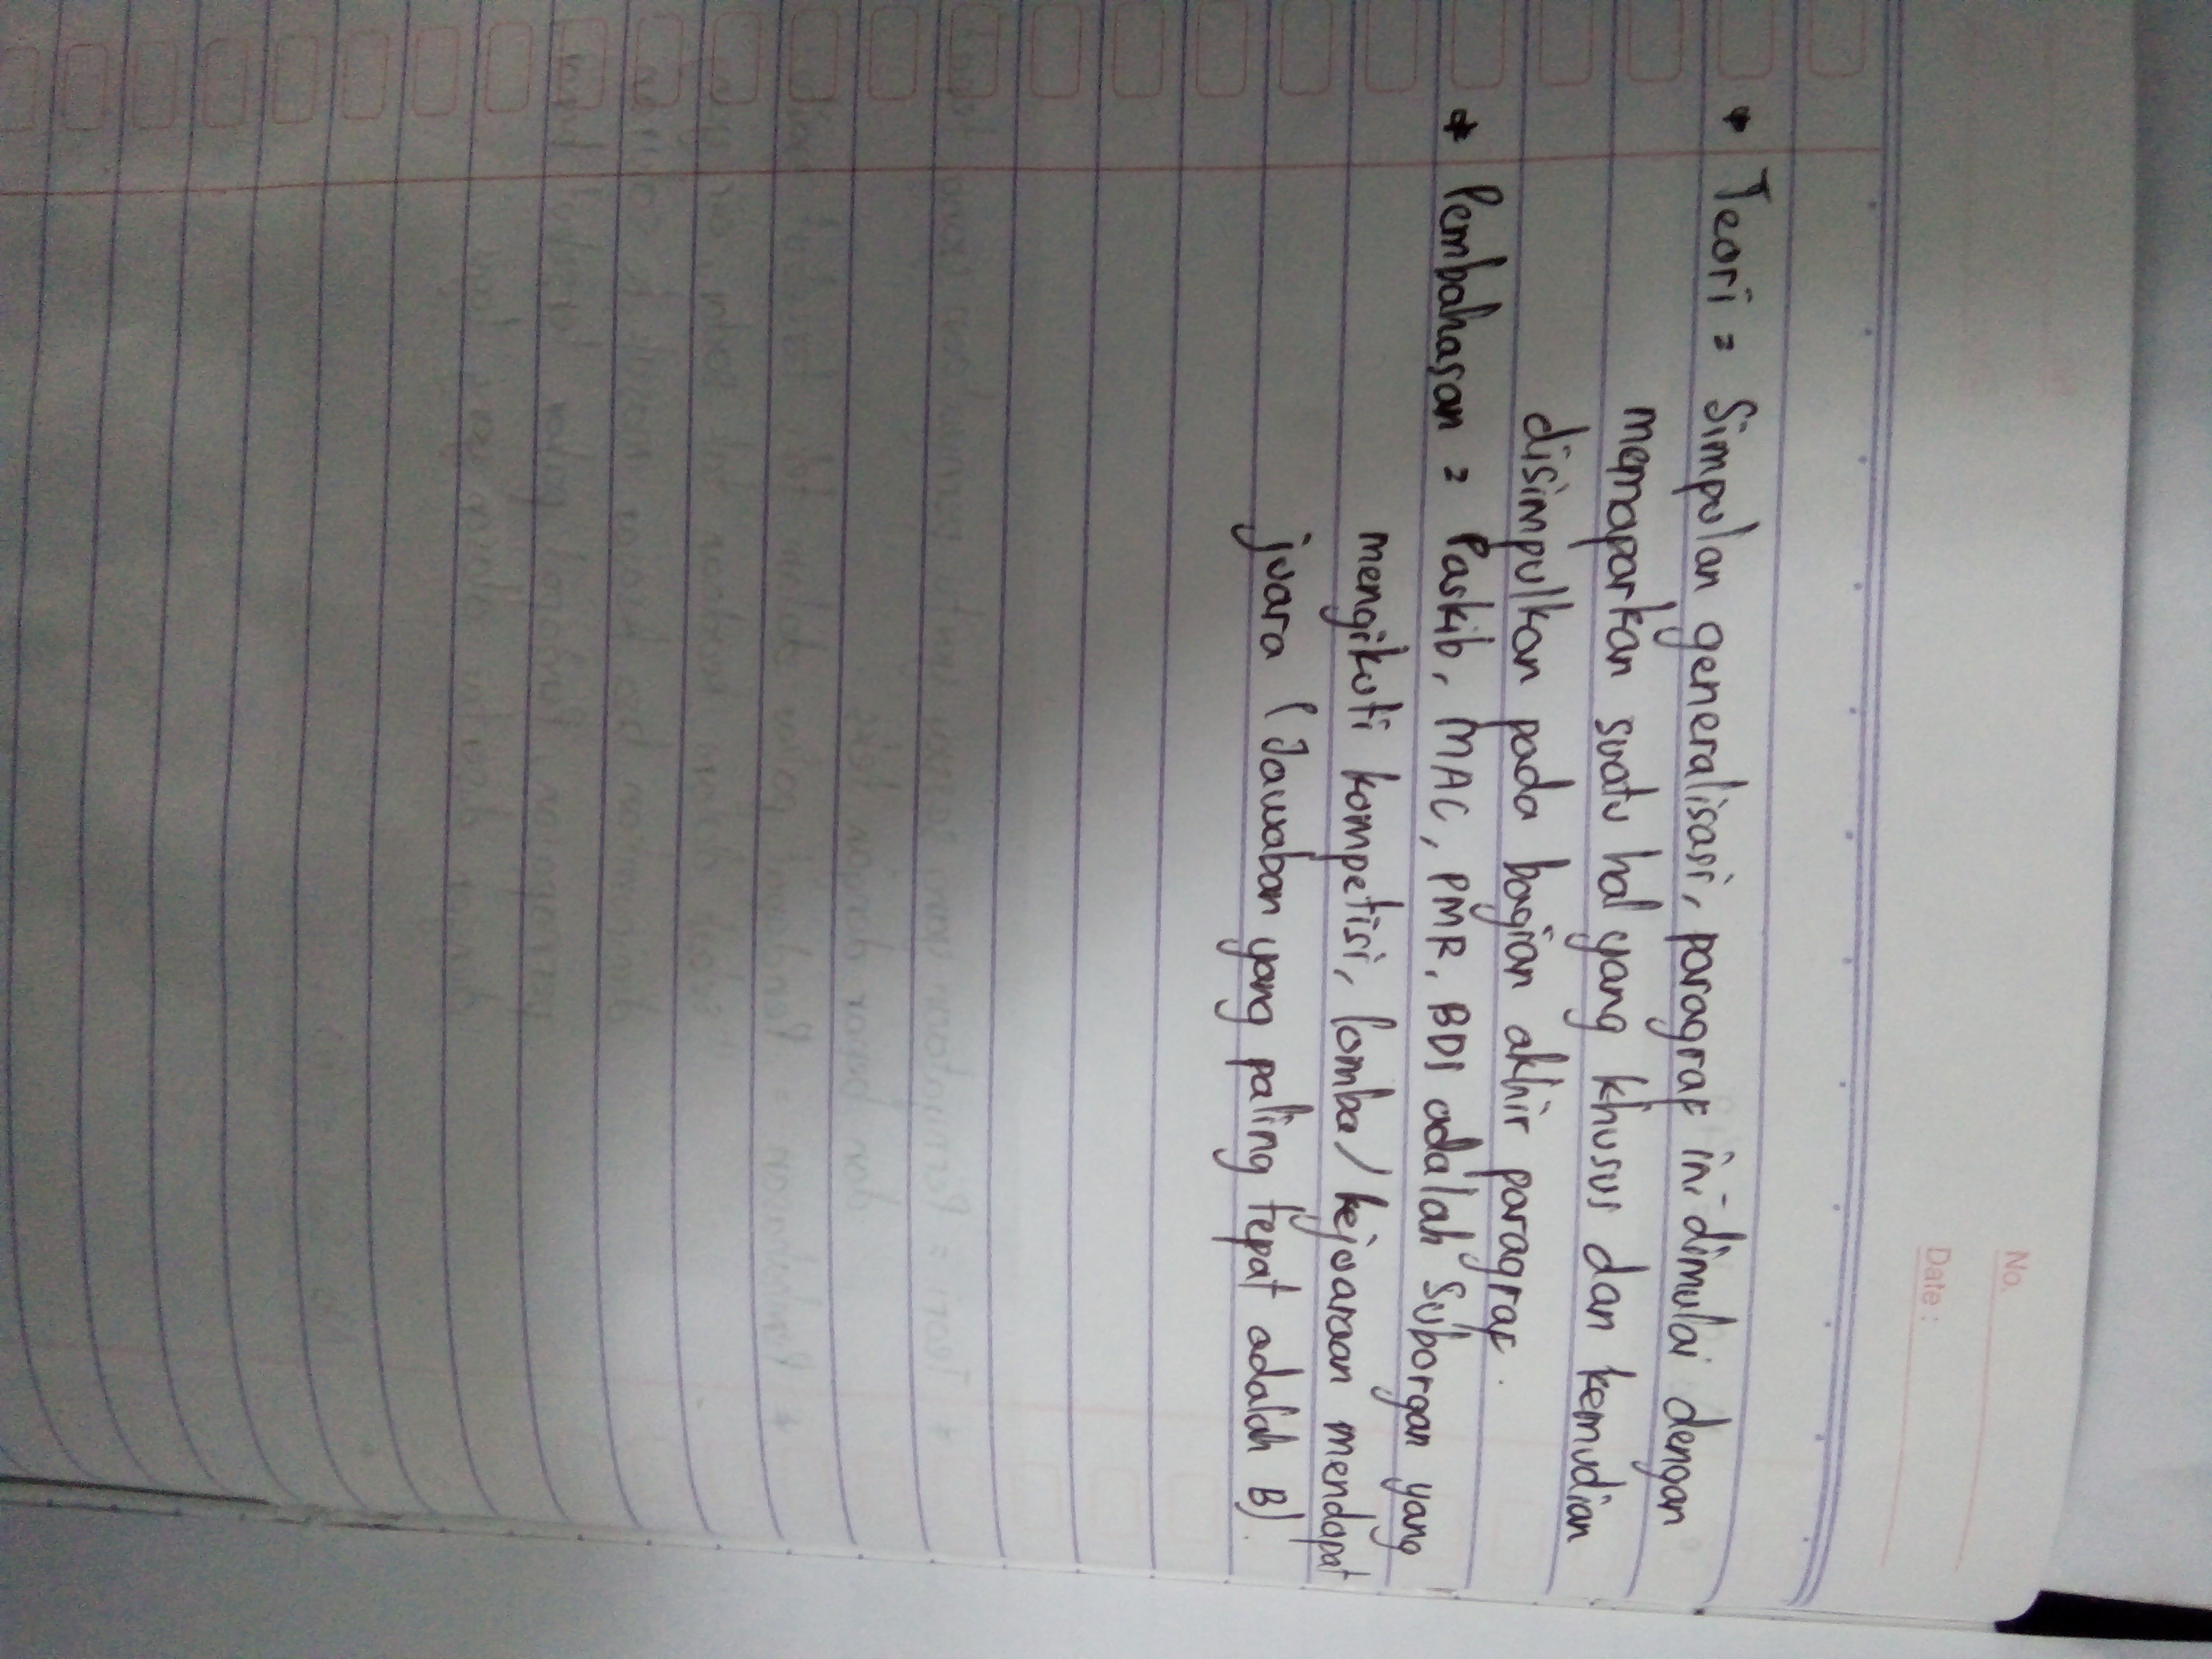 No.
Date :
* Teori = Simpulan generalisasi, paragraf ini dimulai dengan
memaparkan suatu hal yang khusus dan kemudian
disimpulkan pada bagian akhir paragraf.
* Pembahasan = Paskib, MAC, PMR, BDI adalah Suborgan yang
mengikuti kompetisi, lomba/kejuaraan mendapat
juara (Jawaban yang paling tepat adalah B).